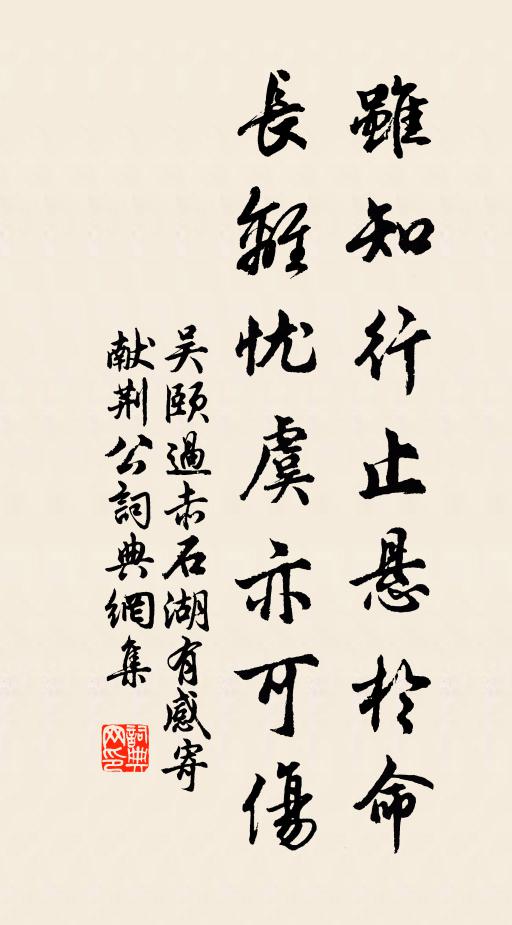 雖知行止悬於命
長離忧虞亦可傷
吴颐過赤石湖有感寄
献荆公詞典網集
詞典网印